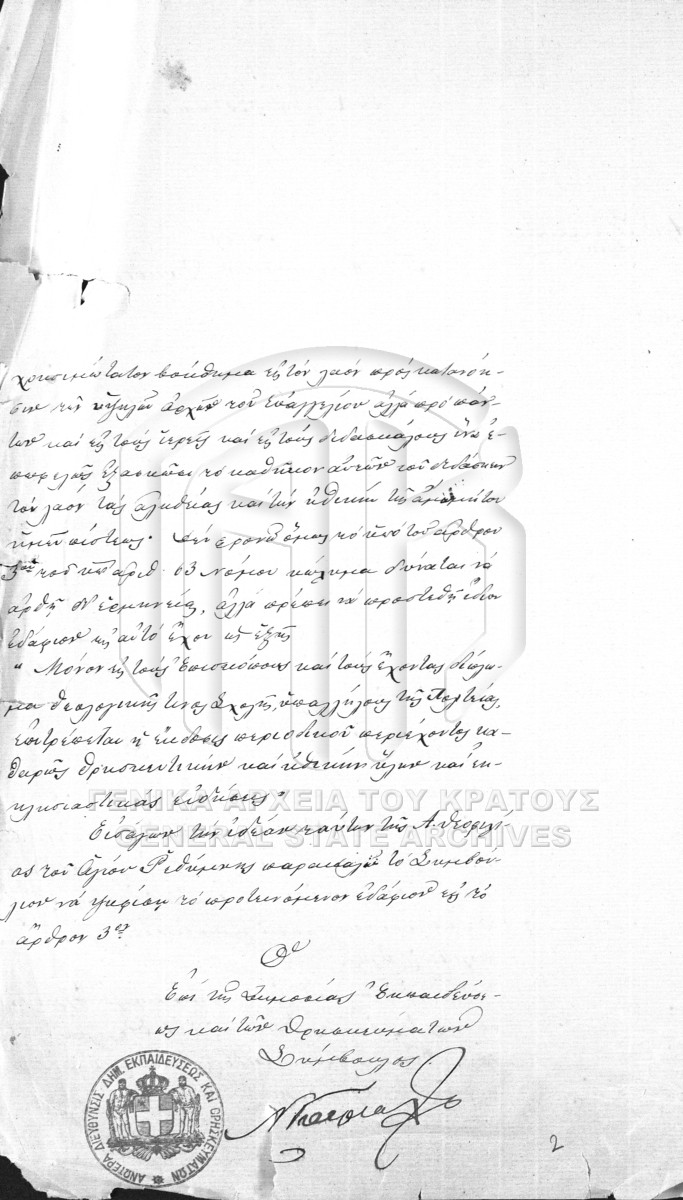 χρησιμώτατον βοήθημα εἰς τὸν λαὸν πρὸς κατανόη-
σιν τῶν ὑψηλῶν ἀρχῶν τοῦ Εὐαγγελίου ἀλλὰ πρὸ πάν-
των καὶ εἰς τοὺς ἱερεῖς καὶ εἰς τοὺς διδασκάλους ἵνα ἐ-
πωφελῶς ἐξασκῶσι τὸ καθῆκον αὐτῶν τοῦ διδάσκειν
τὸν λαὸν τὰς ἀληθείας καὶ τὴν ἠθικὴν τῆς ἀμωμήτου
ἡμῶν πίστεως. Δὲν φρονῶ ὅμως τὸ ὑπὸ τοῦ ἄρθρου
3ου τοῦ ὑπ' ἀριθ. 63 Νόμου κώλυμα δύναται νὰ
ἀρθῇ δι' ἑρμηνείας, ἀλλὰ πρέπει νὰ προστεθῇ ἴδιον
ἐδάφιον εἰς αὐτὸ ἔχον ὡς ἑξῆς
"Μόνον εἰς τοὺς Ἐπισκόπους καὶ τοὺς ἔχοντας δίπλω-
μα θεολογικῆς τινος Σχολῆς, ὑπαλλήλους τῆς Πολιτείας,
ἐπιτρέπεται ἡ ἔκδοσις περιοδικοῦ περιέχοντος κα-
θαρῶς θρησκευτικὴν καὶ ἠθικὴν ὕλην καὶ ἐκ-
κλησιαστικὰς εἰδήσεις"
Εἰσάγων τὴν ἰδέαν ταύτην τῆς Α. Θεοφιλί-
ας τοῦ Ἁγίου Ῥεθύμνης παρακαλῶ τὸ Συμβού-
λιον νὰ ψηφίσῃ τὸ προτεινόμενον ἐδάφιον εἰς τὸ
ἄρθρον 3ον.
Ὁ
Ἐπὶ τῆς Δημοσίας Ἐκπαιδεύσε-
ως καὶ τῶν Θρησκευμάτων
Σύμβουλος
ΑΝΩΤΕΡΑ ΔΙΕΥΘΥΝΣΙΣ ΔΗΜ. ΕΚΠΑΙΔΕΥΣΕΩΣ ΚΑΙ ΘΡΗΣΚΕΥΜΑΤΩΝ
2
ΓΕΝΙΚΑ ΑΡΧΕΙΑ ΤΟΥ ΚΡΑΤΟΥΣ
GENERAL STATE ARCHIVES